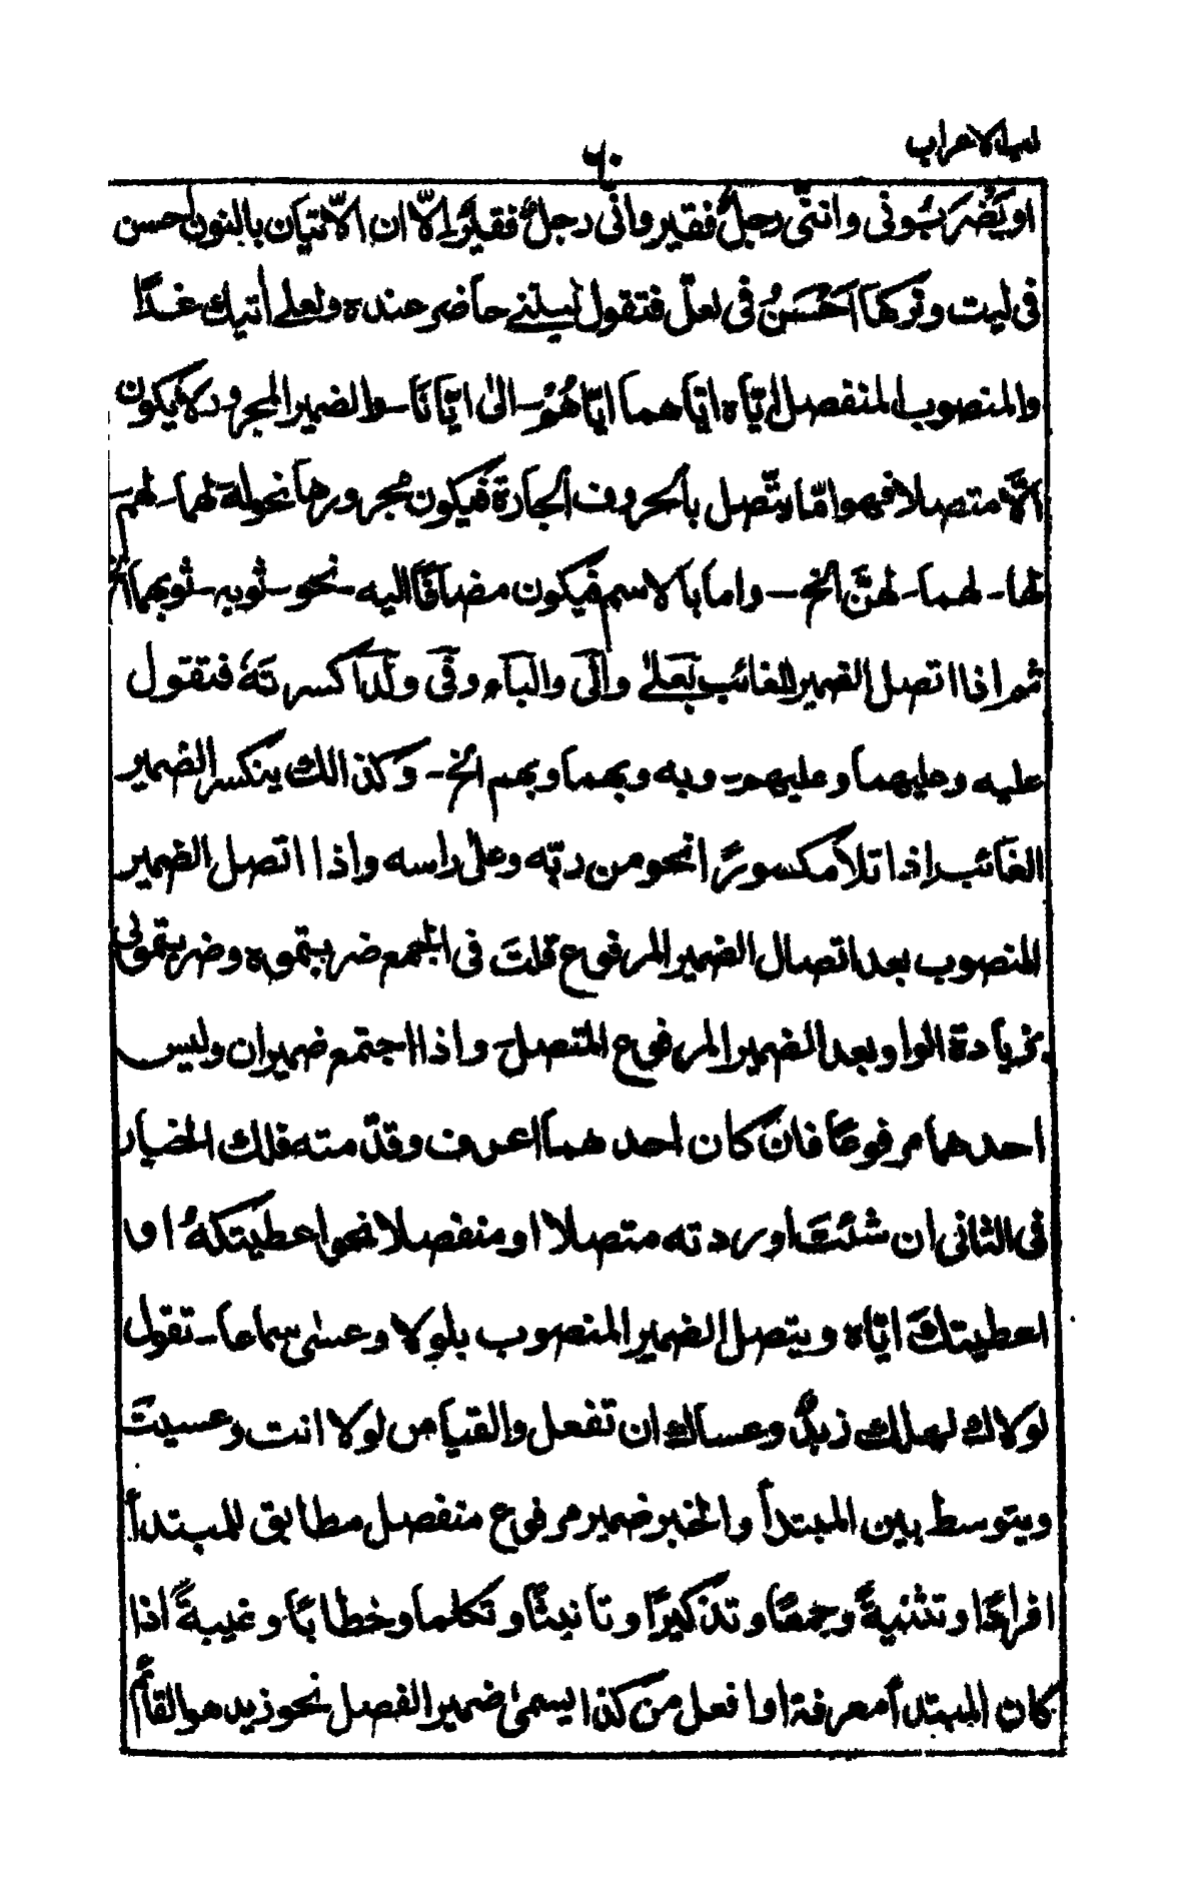 لب الاعراب
٦٠
او يَضْرِبُونى وانّنى رجلٌ فقير وانّى رجلٌ فقيرٌ الّا ان الاتيان بالنون احسن
فى ليت وتركها احْسَنُ فى لعلّ فتقول ليتنے حاضر عنده ولعلے اتيك غدًا
والمنصوب المنفصل ايّاه ايّاهما ايّاهُمْ - الیٰ ايّانَا - والضمير المجرور لا يكون
الّا متصلا فهو امّا يتّصل بالحروف الجارة فيكون مجرورها نحو له - لهما - لهم -
لها - لهما - لهنَّ الخ - واما بالاسم فيكون مضافًا اليه - نحو - ثوبه - ثوبهما الخ
ثم اذا اتصل الضمير الغائب بعلے والى والباء وفى ولدا كسرته فتقول
عليه وعليهما وعليهم - وبه وبهما وبهم الخ - وكذالك ينكسر الضمير
الغائب اذا تلا مكسورًا نحو من ربّه وعلى راسه واذا اتصل الضمير
المنصوب بعد اتصال الضمير المرفوع قلتَ فى الجمع ضربتموه وضربتمونى
بزيادة الواو بعد الضمير المرفوع المتصل - واذا اجتمع ضميران وليس
احدهما مرفوعًا فان كان احدهما اعرف وقدّمته فلك الخيار
فى الثانى ان شئت اوردته متصلا او منفصلا نحو اعطيتكهُ او
اعطيتك ايّاه ويتصل الضمير المنصوب بلولا وعسىٰ سماعا - تقول
لولاك لهلك زيدٌ وعساك ان تفعل والقياس لولا انت وعسيتَ
ويتوسط بين المبتدأ والخبر ضمير مرفوع منفصل مطابق للمبتدأ
افرادًا وتثنيةً وجمعًا وتذكيرًا وتانيثًا وتكلما وخطابًا وغيبةً اذا
كان المبتدأ معرفة او افعل من كذا يسمىٰ ضمير الفصل نحو زيد هو القائم